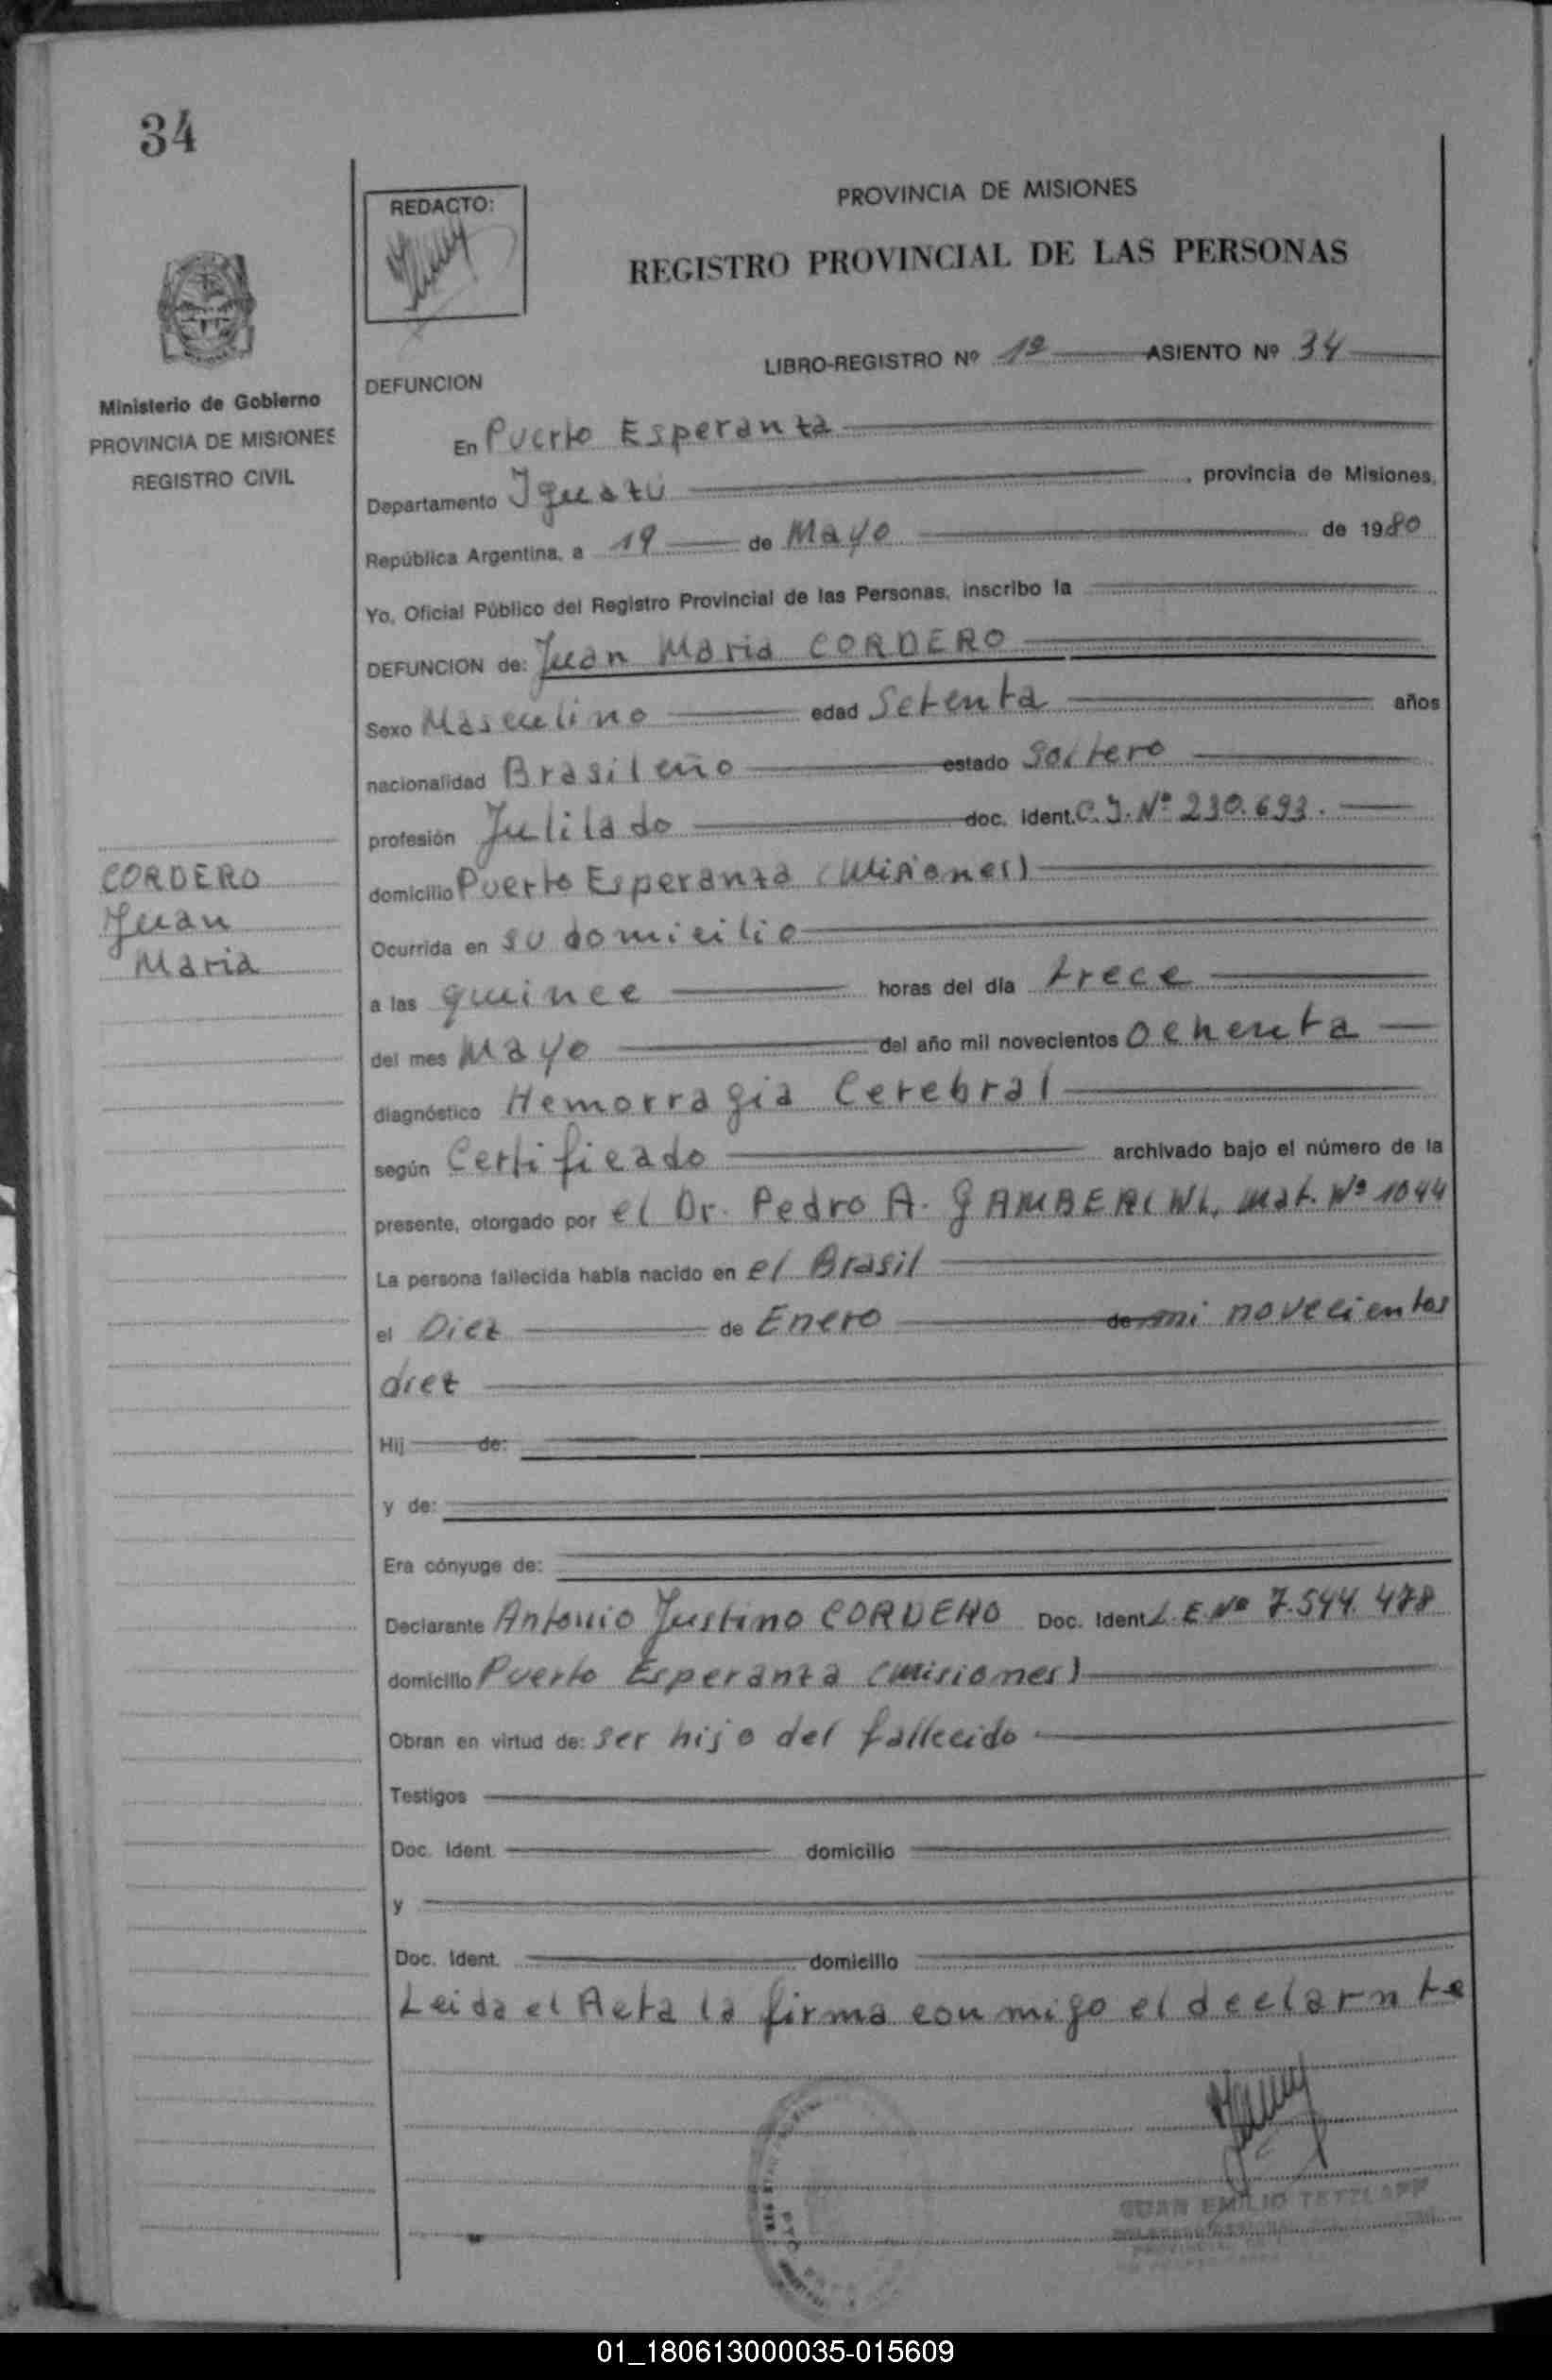 34
REDACTO:
PROVINCIA DE MISIONES
REGISTRO PROVINCIAL DE LAS PERSONAS
LIBRO-REGISTRO Nº 1º ASIENTO Nº 34
DEFUNCION
Ministerio de Gobierno
PROVINCIA DE MISIONES
REGISTRO CIVIL
En Puerto Esperanza
Departamento Iguazú, provincia de Misiones,
República Argentina, a 19 de Mayo de 1980
Yo, Oficial Público del Registro Provincial de las Personas, inscribo la
DEFUNCION de: Juan Maria CORDERO
Sexo Masculino edad Setenta años
nacionalidad Brasileño estado Soltero
profesión Julilado doc. ident. C.I. Nº 230.693.
CORDERO
Juan
Maria
domicilio Puerto Esperanza (Misiones)
Ocurrida en su domicilio
a las quince horas del día trece
del mes Mayo del año mil novecientos ochenta
diagnóstico Hemorragia Cerebral
según Certificado archivado bajo el número de la
presente, otorgado por el Dr. Pedro A. GAMBERINI, Mat. Nº 1044
La persona fallecida había nacido en el Brasil
el Diez de Enero de mi novecientos
diez
Hij de:
y de:
Era cónyuge de:
Declarante Antonio Justino CORDERO Doc. Ident L.E. Nº 7.544.478
domicilio Puerto Esperanza (Misiones)
Obran en virtud de: ser hijo del fallecido
Testigos
Doc. Ident. domicilio
y
Doc. Ident. domicilio
Leida el Acta la firma conmigo el declarnte
JUAN EMILIO TETZLAFF
01_180613000035-015609